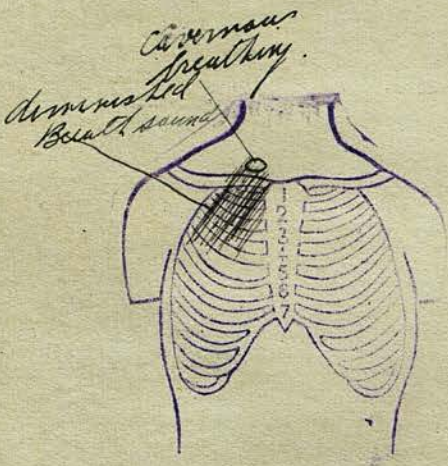 Cavernous
breathing.
diminished
Breath sound
1
2
3
4
5
6
7